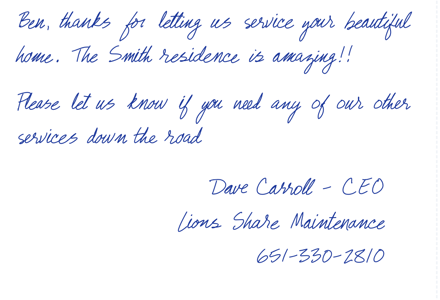 Ben, thanks for letting us service your beautiful
home. The Smith residence is amazing!!
Please let us know if you need any of our other
services down the road
Dave Carroll - CEO
Lions Share Maintenance
651-330-2810